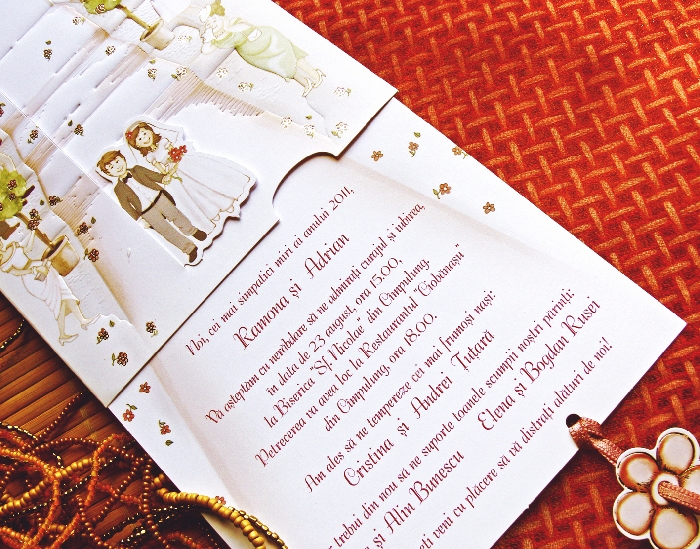 Noi, cei mai simpatici miri ai anului 2011,
Ramona și Adrian
Vă așteptăm cu nerăbdare să ne admirați curajul și iubirea,
în data de 23 august, ora 15.00,
la Biserica "Sf. Nicolae" din Câmpulung.
Petrecerea va avea loc la Restaurantul
din Câmpulung, ora 18.00.
Am ales să ne tempereze cei mai frumoși nași:
Cristina și Andrei Țuțară
trebui din nou să ne suporte toanele scumpii noștri părinți:
și Alin Bunescu Elena și Bogdan Rusei
veni cu plăcere să vă distrați alături de noi!